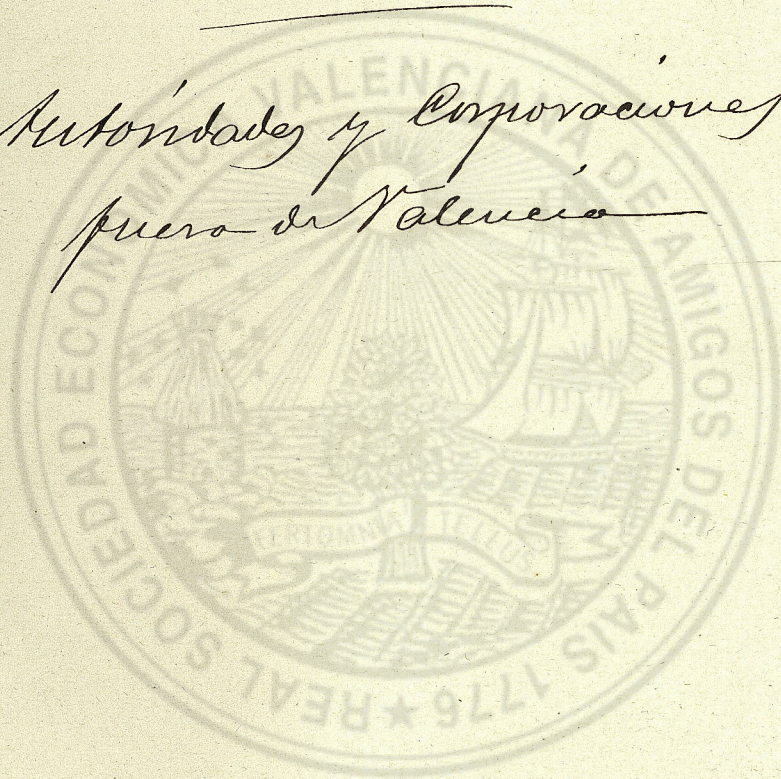 Autoridades y Corporaciones
fuera de Valencia
REAL SOCIEDAD ECONOMICA VALENCIANA DE AMIGOS DEL PAIS 1776 ★
FERT OMNIA TELLUS